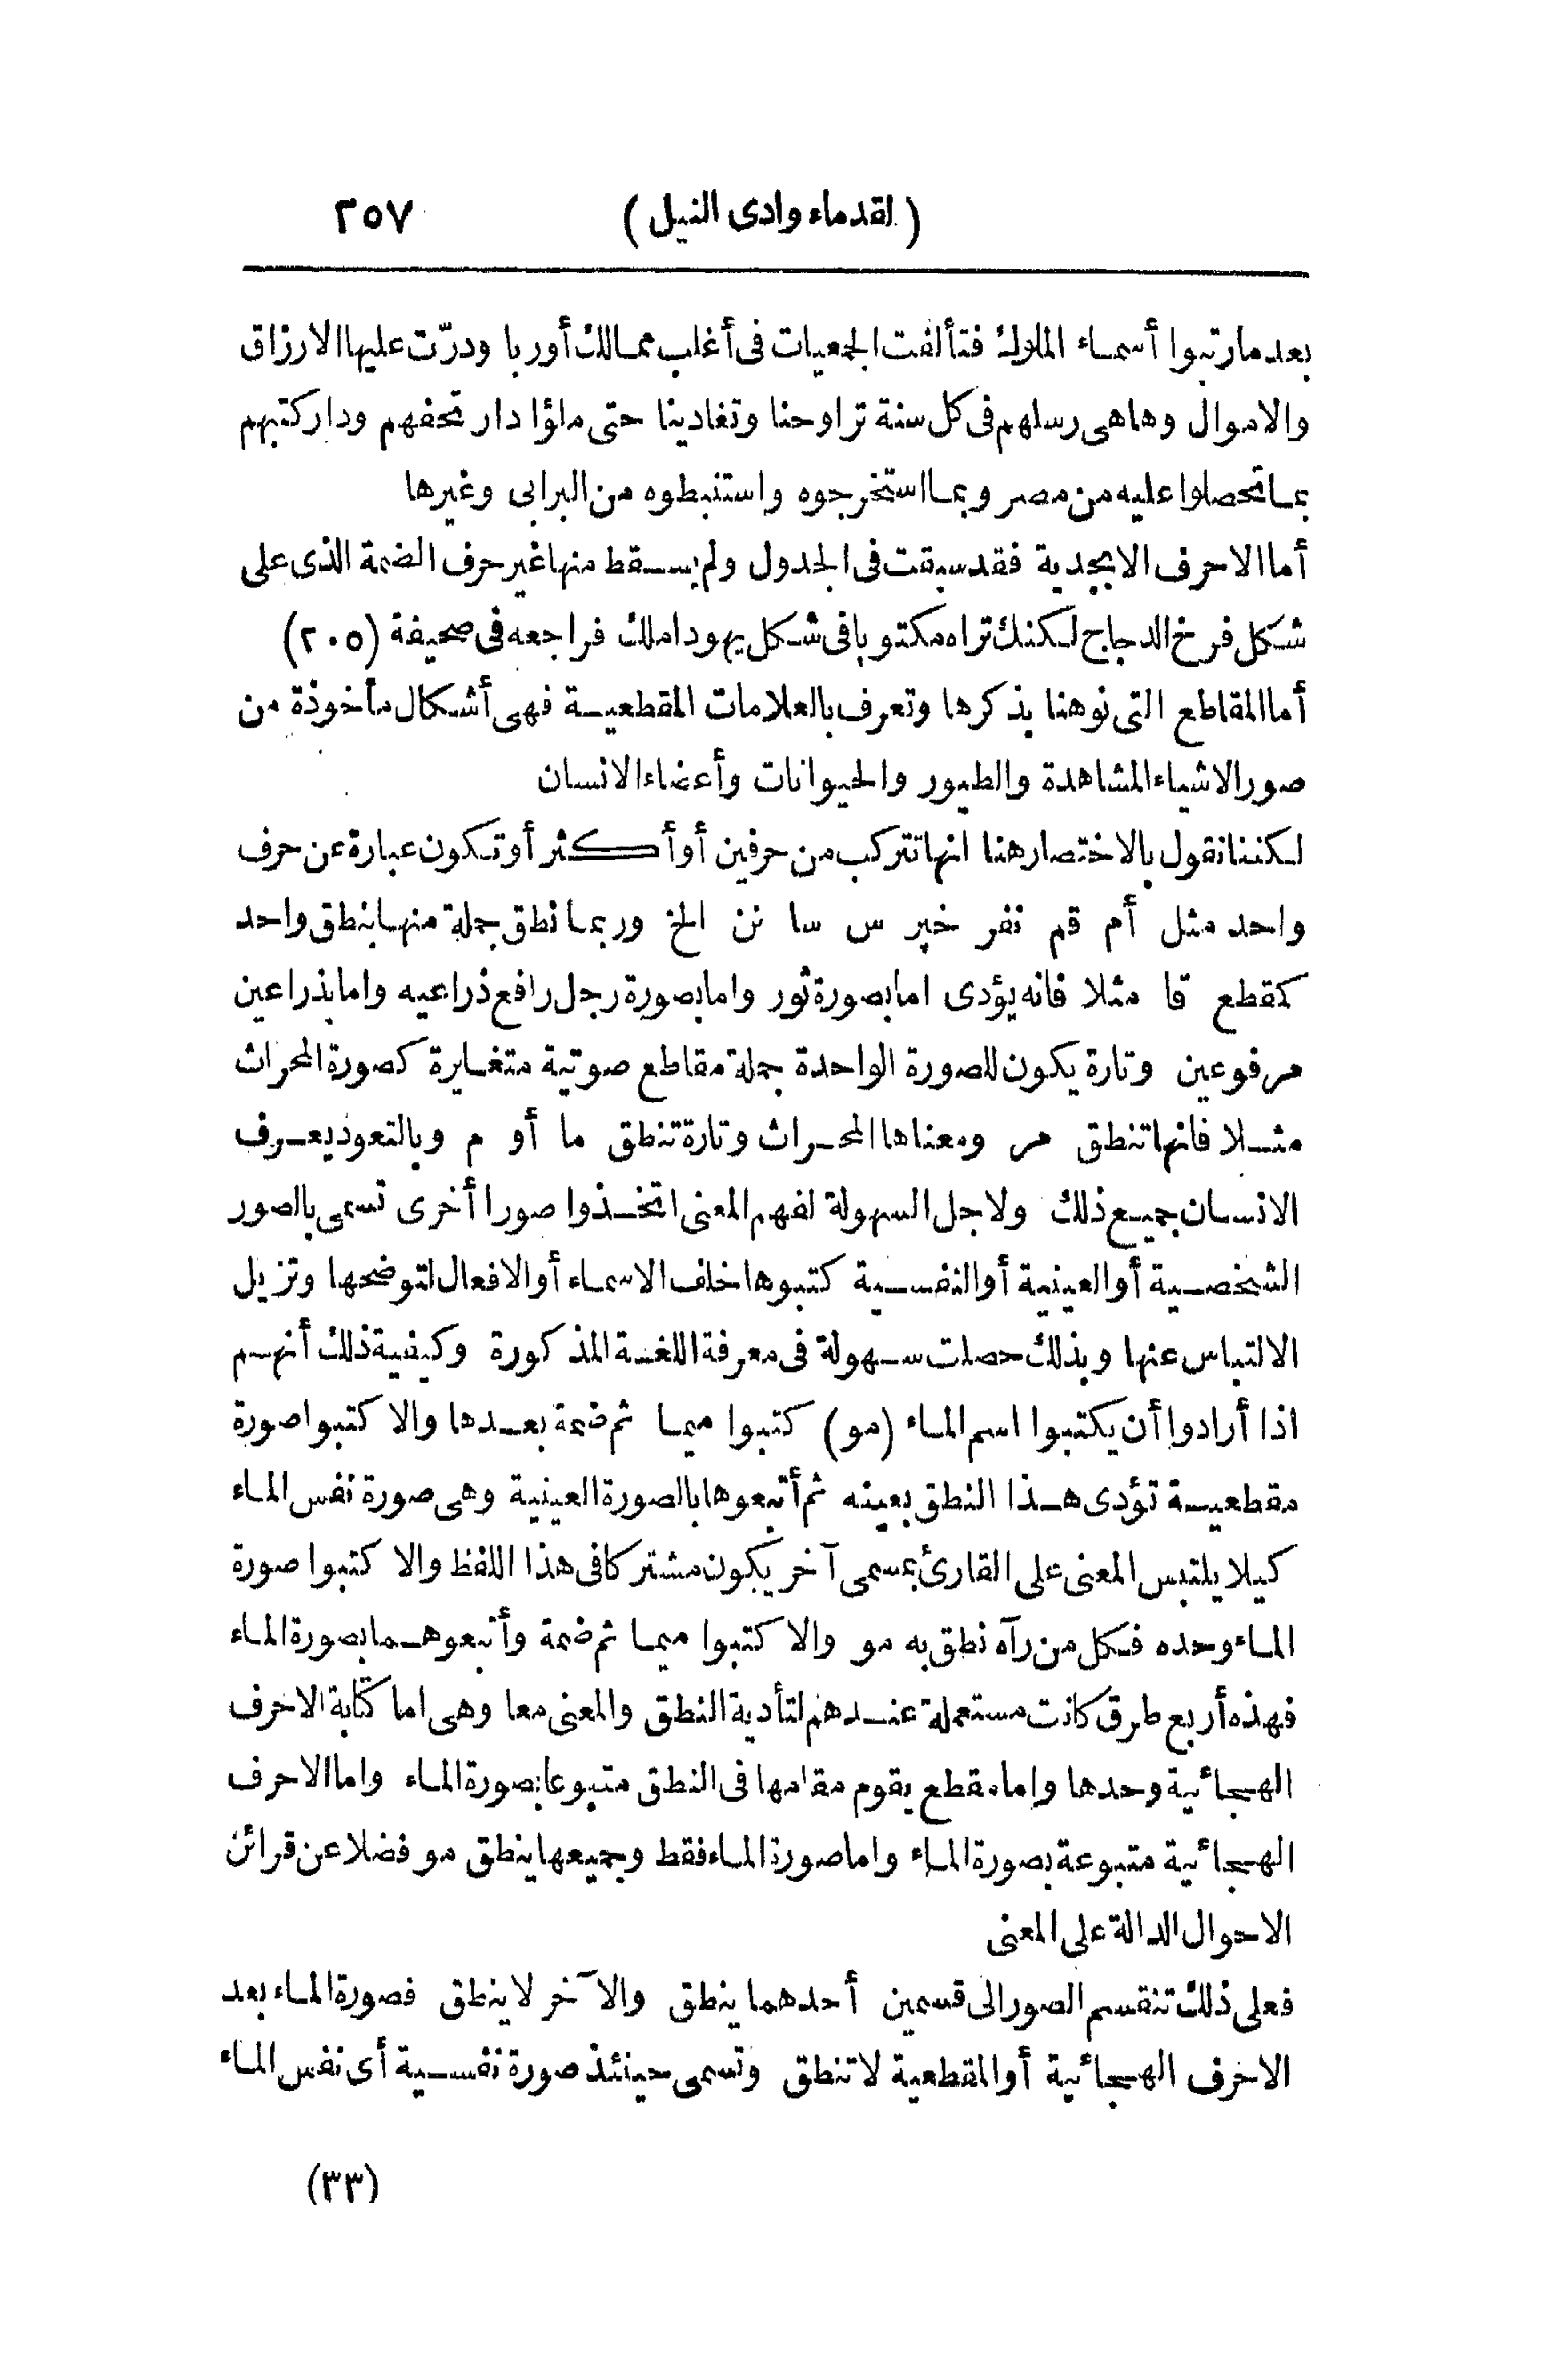 (لقدماء وادى النيل) ٢٥٧
بعد مارتبوا أسماء الملوك فتألفت الجمعيات فى أغلب ممالك أوربا ودرّت عليها الارزاق
والاموال وهاهى رسلهم فى كل سنة تراوحنا وتغادينا حتى ملؤا دار تحفهم ودار كتبهم
بما تحصلوا عليه من مصر وبما استخرجوه واستنبطوه من البرابى وغيرها
أما الاحرف الابجدية فقد سبقت فى الجدول ولم يسقط منها غير حرف الضمة الذى على
شكل فرخ الدجاج لكنك تراه مكتوبا فى شكل يهودا ملك فراجعه فى صحيفة (٢٠٥)
أما المقاطع التى نوهنا بذكرها وتعرف بالعلامات المقطعية فهى أشكال مأخوذة من
صور الاشياء المشاهدة والطيور والحيوانات وأعضاء الانسان
لكننا نقول بالاختصار هنا انها تتركب من حرفين أو أكثر أو تكون عبارة عن حرف
واحد مثل أم قم نفر خپر س سا نن الخ وربما نطق جملة منها بنطق واحد
كقطع قا مثلا فانه يؤدى اما بصورة ثور واما بصورة رجل رافع ذراعيه واما بذراعين
مرفوعين وتارة يكون للصورة الواحدة جملة مقاطع صوتية متغايرة كصورة المحراث
مثلا فانها تنطق مر ومعناها المحراث وتارة تنطق ما أو م وبالتعود يعرف
الانسان جميع ذلك ولاجل السهولة لفهم المعنى اتخذوا صورا أخرى تسمى بالصور
الشخصية أو العينية أو النفسية كتبوها خلف الاسماء أو الافعال لتوضحها وتزيل
الالتباس عنها وبذلك حصلت سهولة فى معرفة اللغة المذكورة وكيفية ذلك أنهم
اذا أرادوا أن يكتبوا اسم الماء (مو) كتبوا ميما ثم ضمة بعدها والا كتبوا صورة
مقطعية تؤدى هذا النطق بعينه ثم أتبعوها بالصورة العينية وهى صورة نفس الماء
كيلا يلتبس المعنى على القارئ بمسمى آخر يكون مشتركا فى هذا اللفظ والا كتبوا صورة
الماء وحده فكل من رآه نطق به مو والا كتبوا ميما ثم ضمة وأتبعوهما بصورة الماء
فهذه أربع طرق كانت مستعملة عندهم لتأدية النطق والمعنى معا وهى اما كتابة الاحرف
الهجائية وحدها واما مقطع يقوم مقامها فى النطق متبوعا بصورة الماء واما الاحرف
الهجائية متبوعة بصورة الماء واما صورة الماء فقط وجميعها ينطق مو فضلا عن قرائن
الاحوال الدالة على المعنى
فعلى ذلك تنقسم الصور الى قسمين أحدهما ينطق والآخر لا ينطق فصورة الماء بعد
الاحرف الهجائية أو المقطعية لا تنطق وتسمى حينئذ صورة نفسية أى نفس الماء
(٣٣)